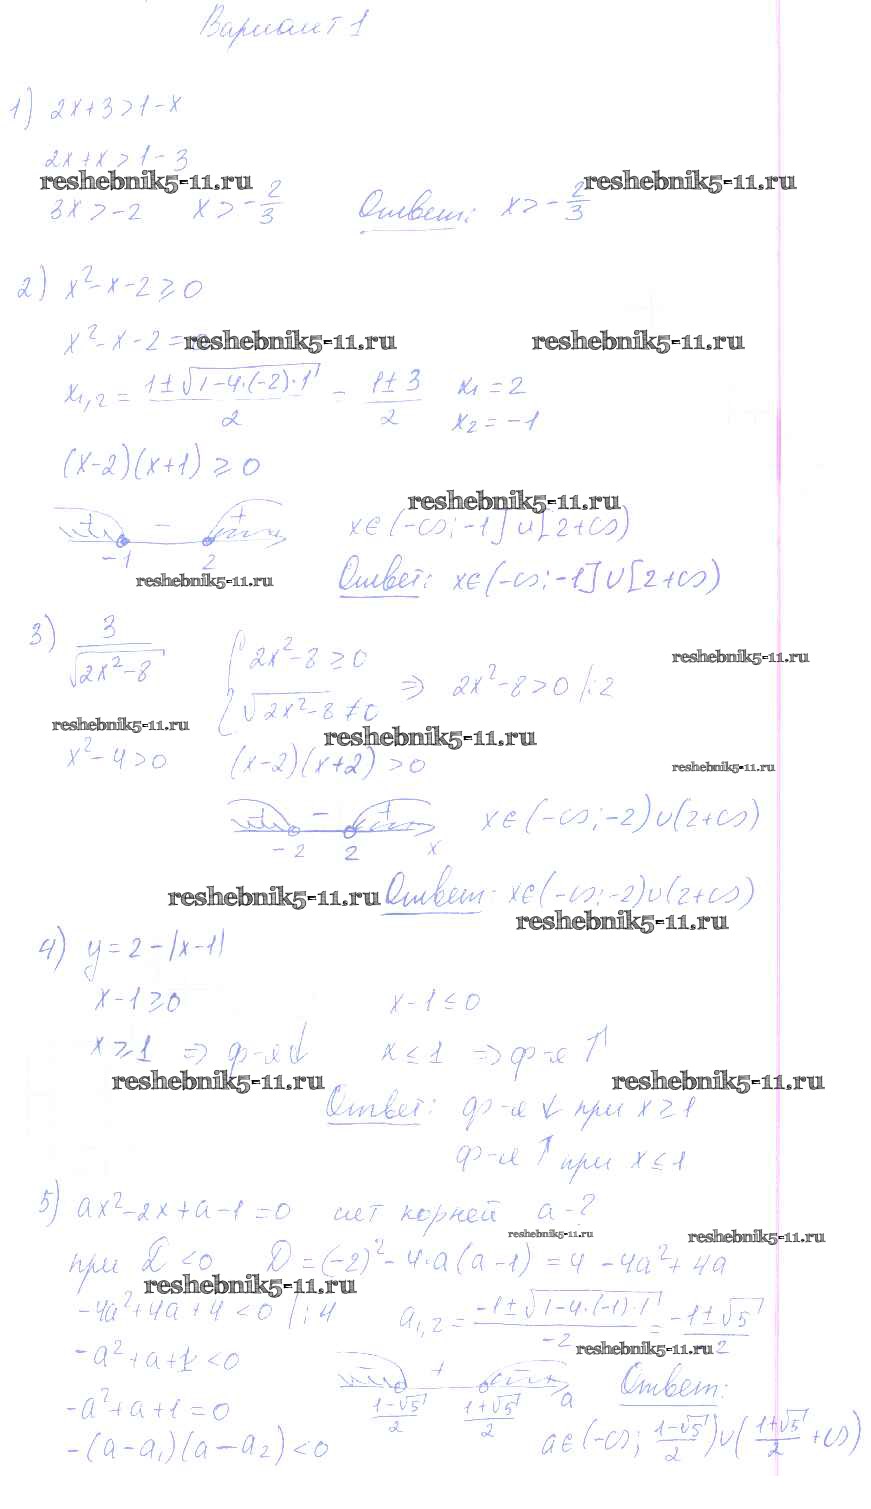 Вариант 1
1) 2x+3>1-x
2x+x>1-3
reshebnik5-11.ru reshebnik5-11.ru
3x>-2 x>-2/3 Ответ: x>-2/3
2) x²-x-2≥0
x²-x-2=
reshebnik5-11.ru reshebnik5-11.ru
x₁,₂ = (1±√(1-4·(-2)·1))/2 = (1±3)/2 x₁=2
x₂=-1
(x-2)(x+1)≥0
reshebnik5-11.ru
+ - + x∈(-∞;-1]∪[2+∞)
-1 2
reshebnik5-11.ru Ответ: x∈(-∞;-1]∪[2+∞)
3) 3/√(2x²-8) { 2x²-8≥0
√(2x²-8)≠0 ⇒ 2x²-8>0 |:2
reshebnik5-11.ru
reshebnik5-11.ru reshebnik5-11.ru
x²-4>0 (x-2)(x+2)>0
reshebnik5-11.ru
+ - + x∈(-∞;-2)∪(2+∞)
-2 2 x
reshebnik5-11.ru Ответ: x∈(-∞;-2)∪(2+∞)
reshebnik5-11.ru
4) y=2-|x-1|
x-1≥0 x-1≤0
x≥1 ⇒ ф-я↓ x≤1 ⇒ ф-я↑
reshebnik5-11.ru reshebnik5-11.ru
Ответ: ф-я ↓ при x≥1
ф-я ↑ при x≤1
5) ax²-2x+a-1=0 нет корней a-?
reshebnik5-11.ru reshebnik5-11.ru
при D<0 D=(-2)²-4·a(a-1)=4-4a²+4a
reshebnik5-11.ru
-4a²+4a+4<0 |:4 a₁,₂ = (-1±√(1-4·(-1)·1))/-2 = (-1±√5)/2
reshebnik5-11.ru
-a²+a+1<0 +
-a²+a+1=0 (1-√5)/2 (1+√5)/2 a Ответ:
-(a-a₁)(a-a₂)<0 a∈(-∞; (1-√5)/2)∪((1+√5)/2+∞)